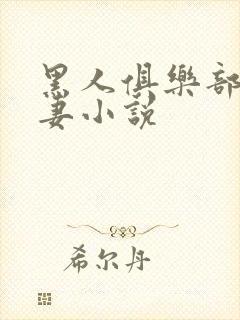 黑人俱樂部
妻小說
希尔丹